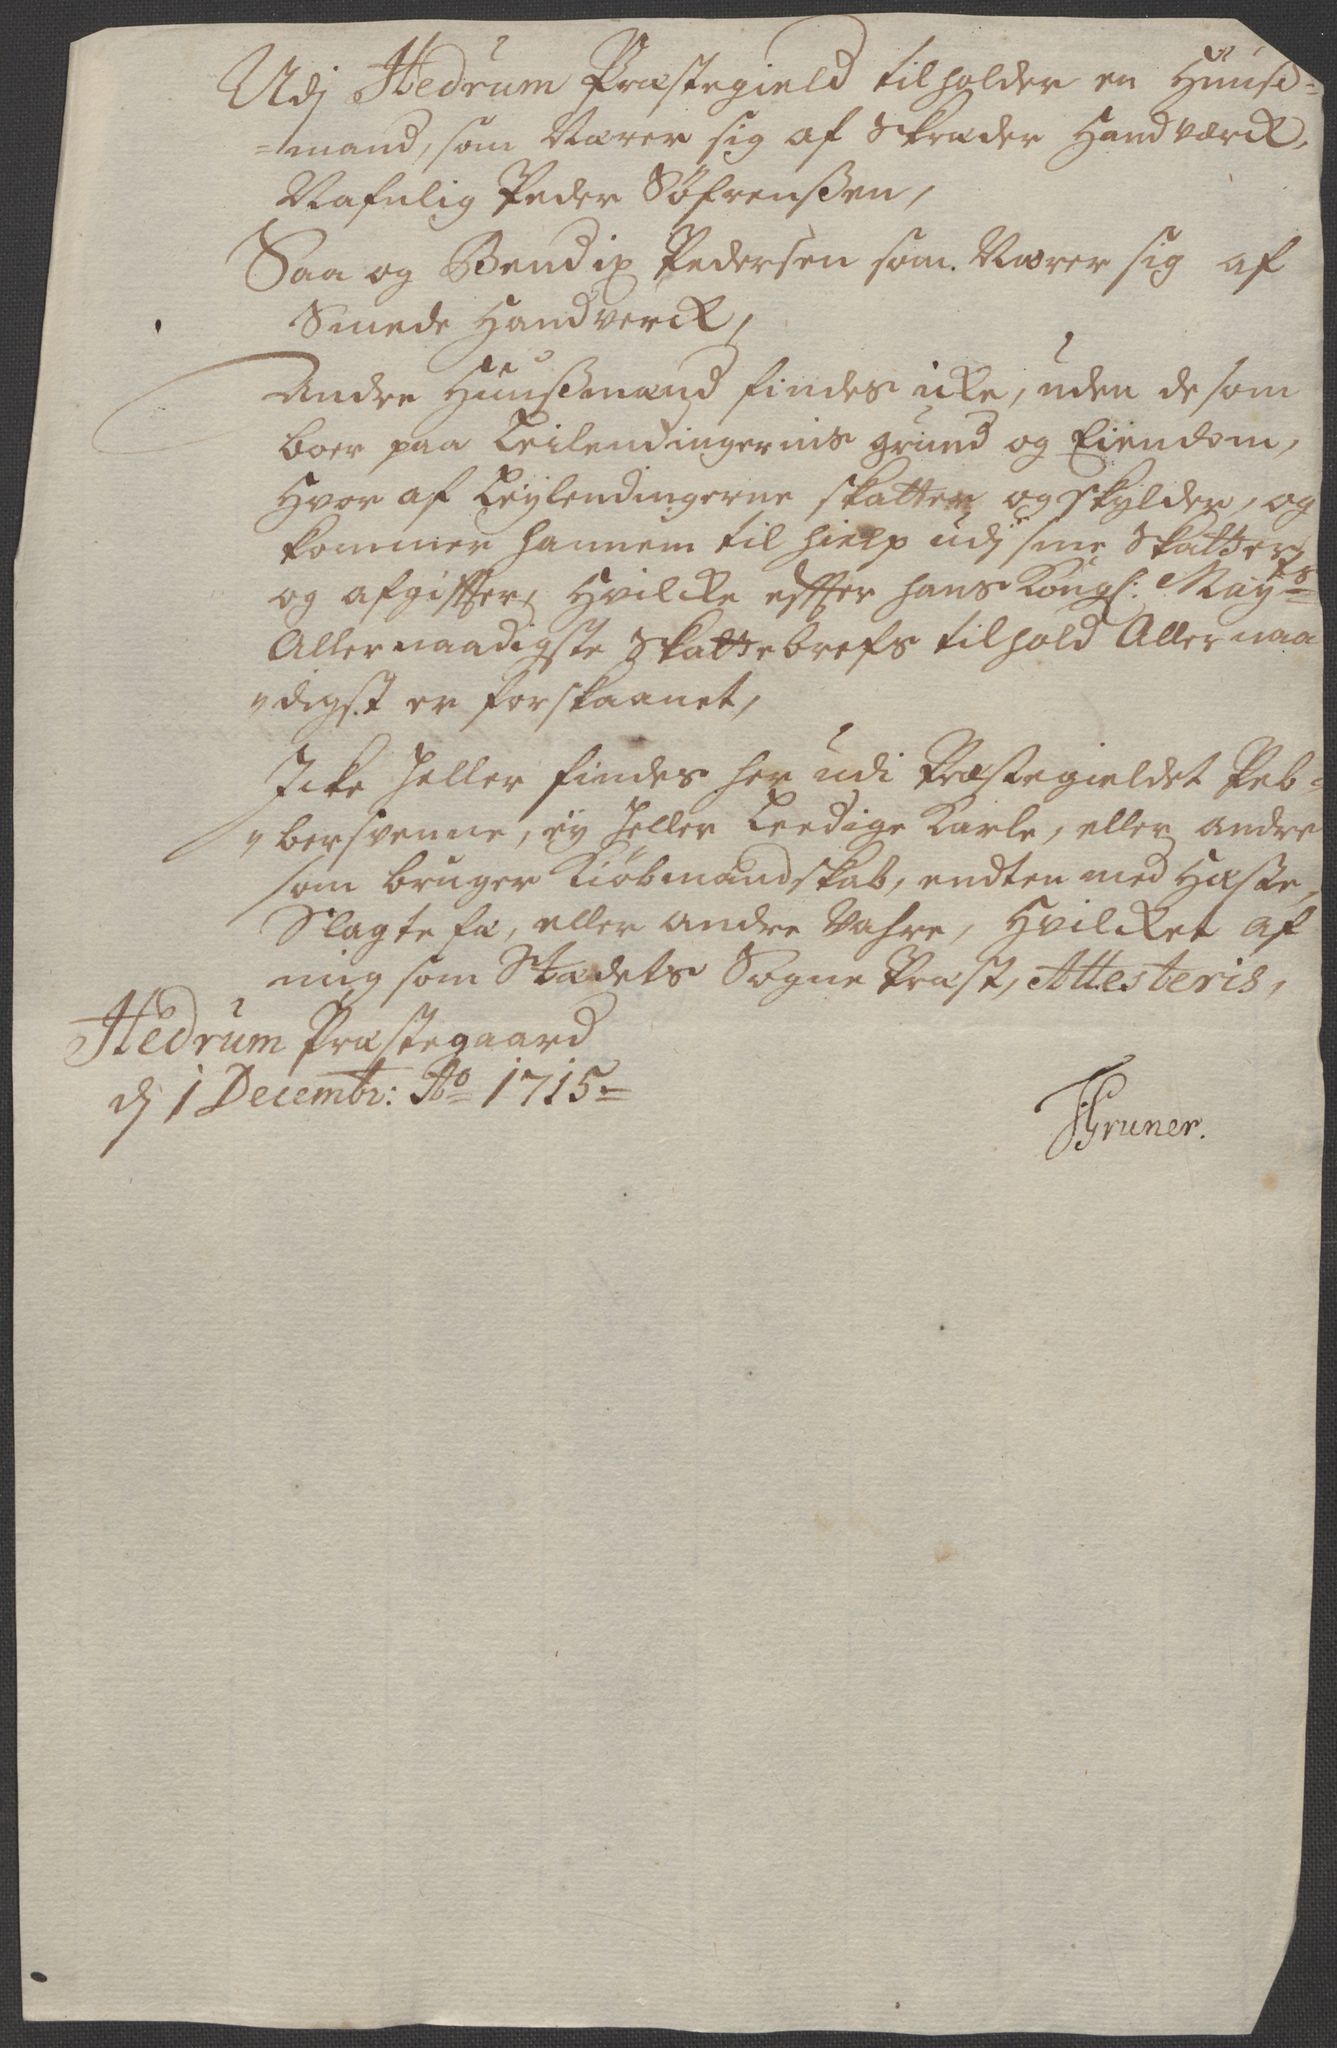 Udj Hedrum Præstegield tilholder en Huuse=
=mand, som Nærer sig af Skræder Handværck,
Nafnlig Peder Söfrenßen,
Saa og Bendix Pedersen som Nærer sig af
Smede Handverck,
Andre Huußmænd findes icke, uden de som
boer paa Leilendingernis grund og Eiendom,
Hvor af Leylendingerne skatter og skylder, og
kommer hannem til hielp udj sine Skatter
og afgiffter, Hvilcke effter hans Kongl: Mayts=
Allernaadigste Skattebrefs tilhold Allernaa
"digst er forskaanet,
Icke heller findes her udi Præstegieldet Peb=
"bersvenne, ey heller Leedige Karle, eller andre
som bruger Kiöbmandskab, endten med Hæste,
Slagte fæ, eller andre Vahre, Hvilcket af
mig som Stædets Sogne Præst, Attesteris,
Hedrum Præstegaard
dj 1 Decembr: Ao= 1715=
Gruner.